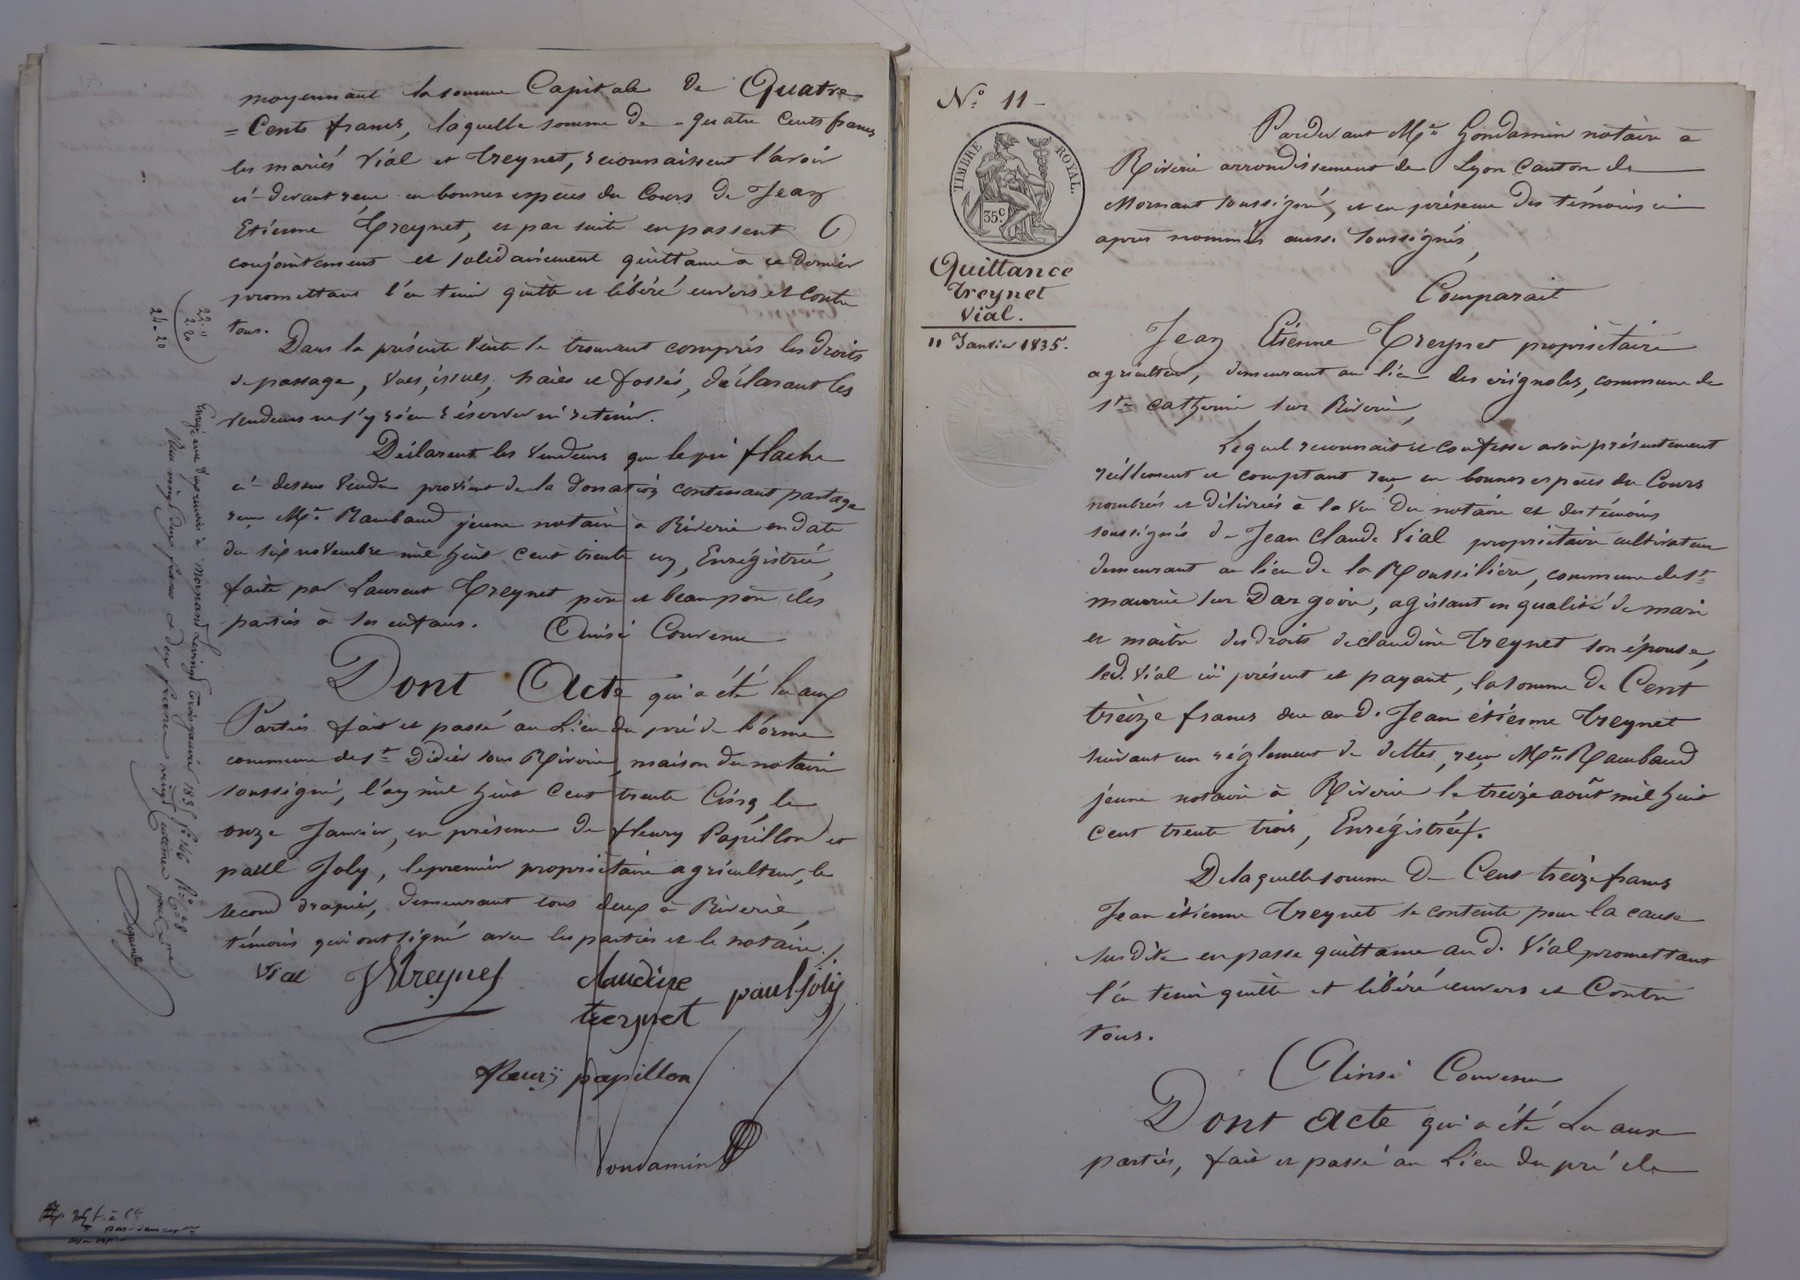 moyennant la somme Capitale de Quatre
= Cents francs, laquelle somme de quatre Cents francs
les mariés Vial et Treynet, reconnaissent l'avoir
ci-devant reçu en bonnes espèces du Cours de Jean
Etienne Treynet, et par suite en passent
conjointement et solidairement quittance à ce dernier
promettant l'en tenir quitte et libéré envers et contre
tous.
Dans la présente Vente se trouvant compris les droits
de passage, vues, issues, haies et fossés, déclarant les
vendeurs ne s'y rien réserver ni retenir.
Déclarent les Vendeurs que le pré flache
ci-dessus Vendu provient de la donation contenant partage
reçu Me. Rambaud jeune notaire à Riverie en date
du six novembre mil huit cent trente un, Enrégistrée,
faite par Laurent Treynet père et beau père des
parties à ses enfans. Ainsi Convenu
Dont Acte qui a été lu aux
Parties fait et passé au Lieu du pré de l'orme
commune de St. Didier sous Riverie, maison du notaire
soussigné, l'an mil huit Cent trente Cinq le
onze Janvier, en présence de fleury Papillon et
paul Joly, le premier propriétaire agriculteur, le
second drapier, demeurant tous deux à Riverie,
témoins qui ont signé avec les parties et le notaire./.
Vial JETreynet Claudine Treynet paul joly
fleury papillon
Gondamin
22. 11
2. 20
24. 20
N.o 11 -
TIMBRE ROYAL.
35c
Quittance
Treynet
Vial.
11 Janvier 1835.
Pardevant Me. Gondamin notaire à
Riverie arrondissement de Lyon Canton de
Mornant soussigné, et en présence des témoins ci
après nommés aussi soussignés,
Comparait
Jean Etienne Treynet propriétaire
agriculteur, demeurant au lieu des vignoles, commune de
Ste Catherine sur Riverie,
Lequel reconnait et confesse avoir présentement
réellement et comptant reçu en bonnes espèces du Cours
nombrés et délivrées à la Vue du notaire et des témoins
soussignés de Jean Claude Vial propriétaire cultivateur
demeurant au lieu de la Roussilière, commune de St.
maurice sur Dargoire, agissant en qualité de mari
et maître des droits de claudine Treynet son épouse,
led. Vial ici présent et payant, la somme de Cent
treize francs due au d. Jean étienne Treynet
suivant un réglement de dettes, reçu Me. Rambaud
jeune notaire à Riverie le treize août mil huit
cent trente trois, Enrégistrée.
De laquelle somme de Cent treize francs
Jean étienne Treynet se contente pour la cause
susdite en passe quittance au d. Vial promettant
l'en tenir quitte et libéré envers et Contre
tous.
Ainsi Convenu
Dont Acte qui a été Lu aux
parties, fait et passé au Lieu du pré de